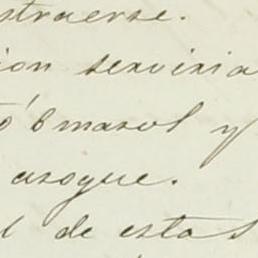 straerse.
ion serviria
ó 6 marol y
azogue.
l de estas